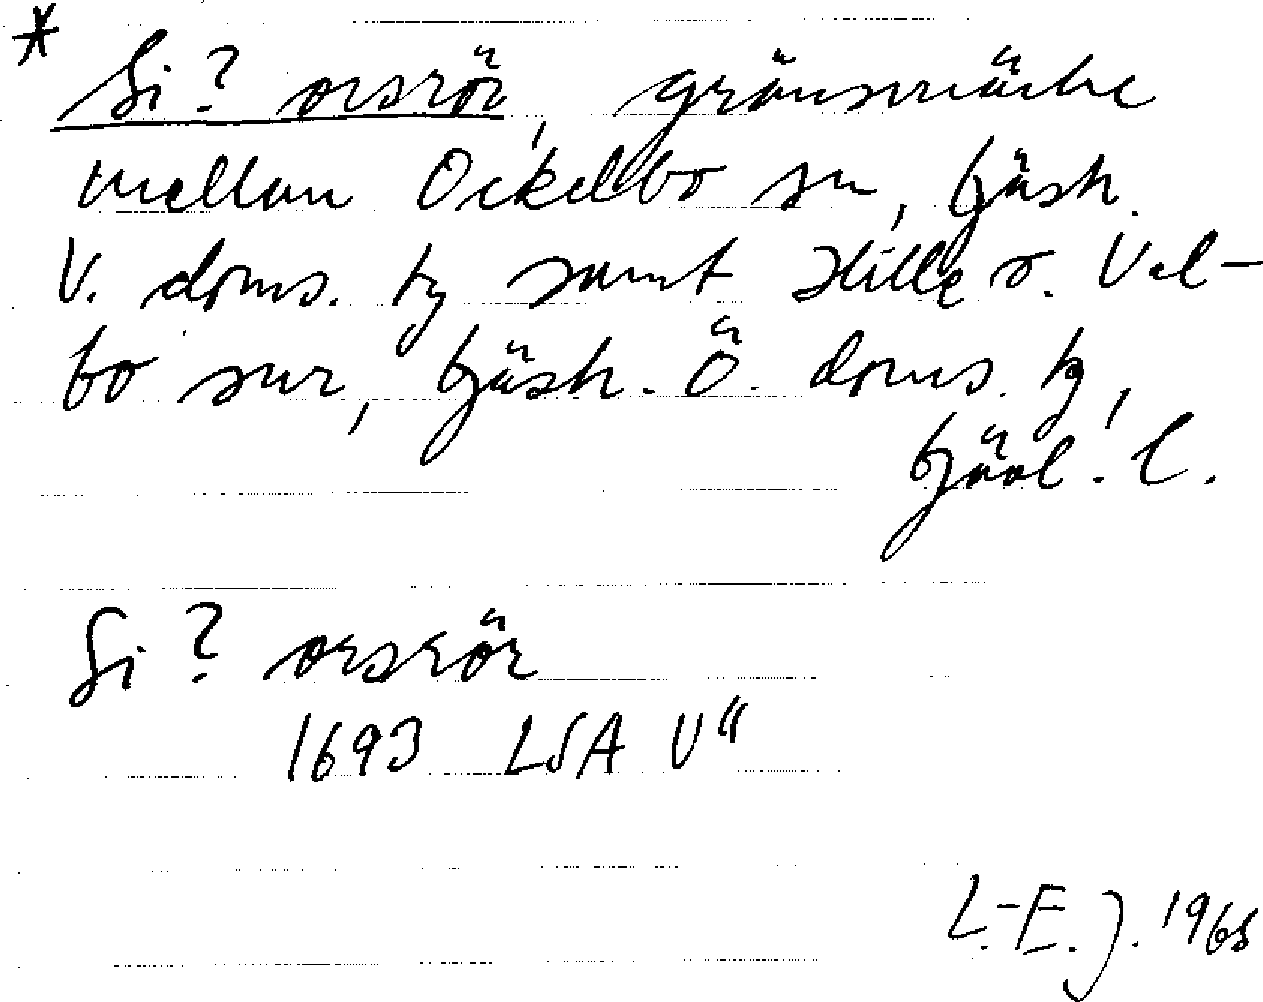 * Si? orsrör, gränsmärke
mellan Ockelbo sn, Gäst.
V. doms. tg samt Hille o. Val-
bo snr, Gäst. Ö. doms. tg,
Gävl. l.
Si? orsrör
1693 LSA U"
L.-E. J. 1968